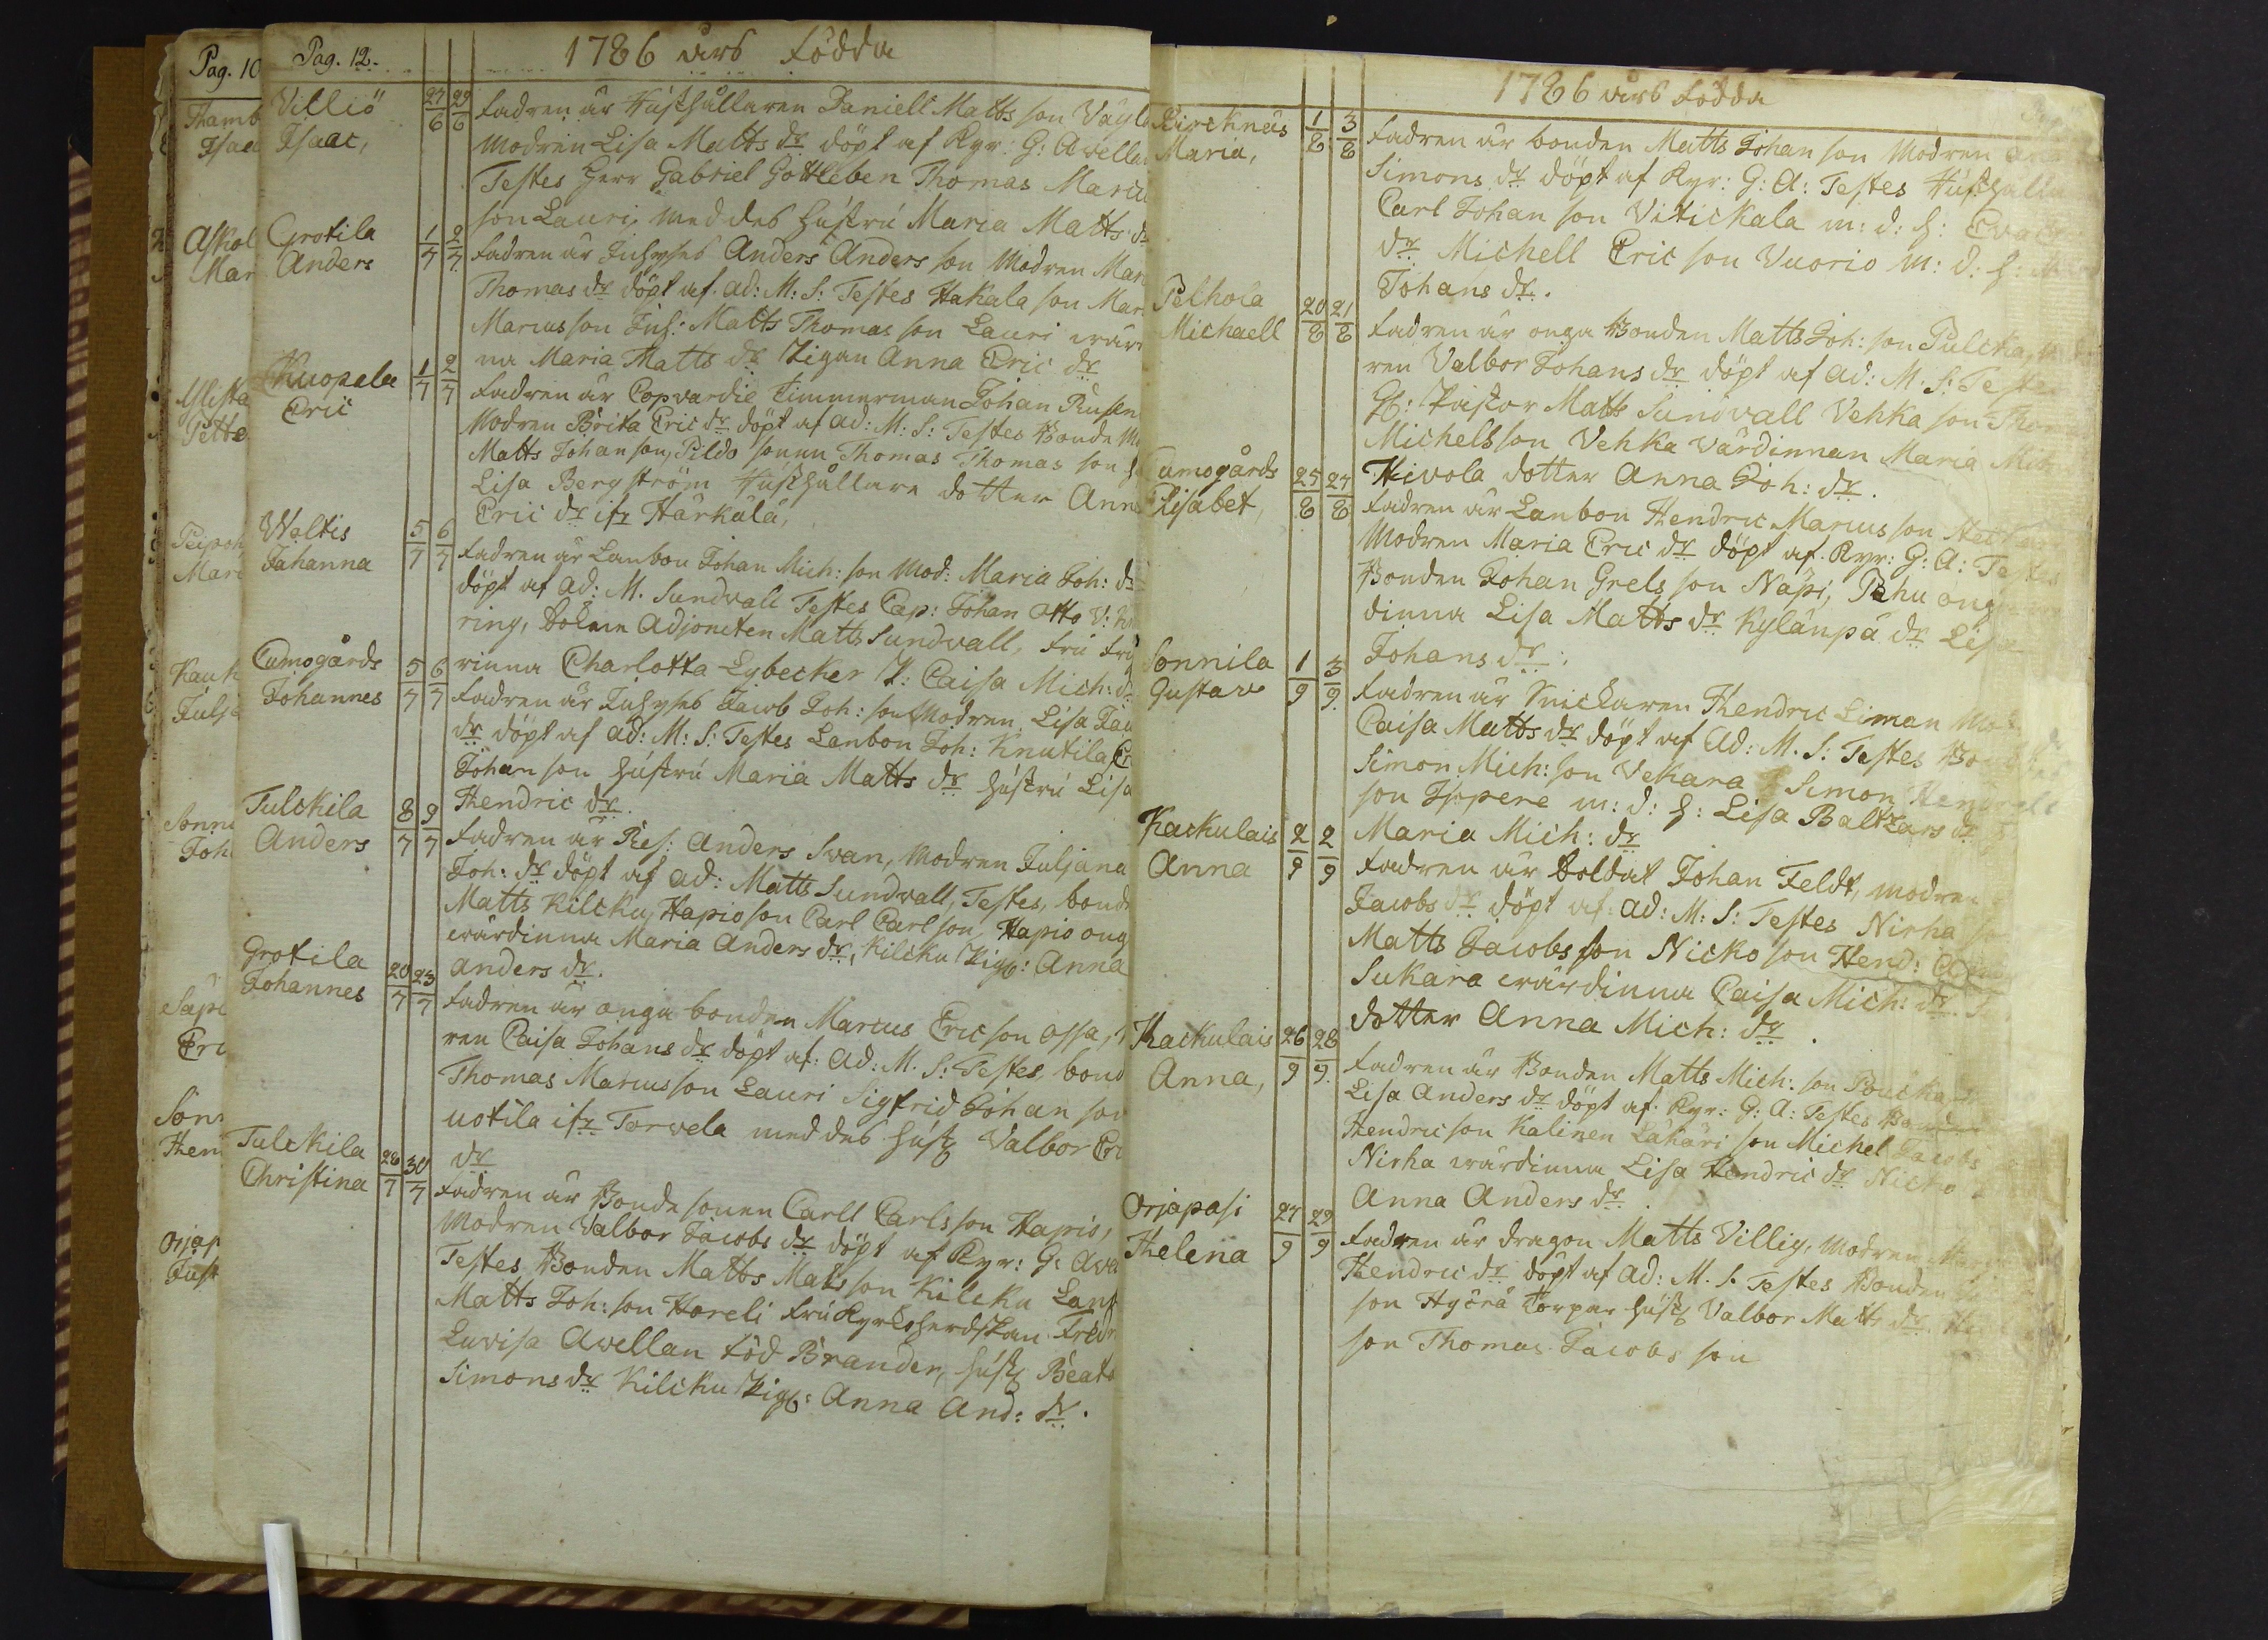 Pag. 10
Thamb
Isaa
Askol
Mar
Yliska
Pette
Peipoh
Mari
Kauk
Julja
Sonni
Joh
Säpi
Eri
Sonn
Hen
Orjap
Just
Pag. 12.
1786 års födda
Villiö 27/6 29/6 fadren är Hushållaren Daniell Matts son Väyl
Isaac, modren Lisa Matts dr döpt af Kyr: G: Avellan
Testes Herr Gabriel Gottleben Thomas Marcus
son Lauri, med des hustru Maria Matts dr
Grotila 1/7 2/7 fadren är Inhyses Anders Anders son Modren Mar
Anders Thomas dr döpt af. ad: M: S: Testes Hakala son Mar
Marcus son Inh: Matts Thomas son Lauri wär
na Maria Matts dr Pigan Anna Eric dr
Kuopala 1/7 2/7 fadren är Copvardie Timmerman Johan Rusen
Eric Modren Brita Eric dr döpt af ad: M: S: Testes Bonde M
Matts Johan son, Pildo sonen Thomas Thomas son
Lisa Bergström Hushållare dotter Ann
Eric dr ifr Härkälä,
Weltis 5/7 6/7 fadren är Lanbon Johan Mich: son Mod: Maria Joh: dr
Johanna döpt af ad: M. Sundvall Testes Cap: Johan Otto V:
ring, Adjoncten Matts Sundvall, fru
rinna Charlotta Lybecker P: Caisa Mich: dr
Cumogårds 5/7 6/7 fadren är Inhyses Jacob Joh: son Modren Lisa
Johannes dr döpt af ad: M: S: Testes Lanbon Joh: Knutila
Johan son hustru Maria Matts dr hustru Lisa
Hendric dr.
Tulckila 8/7 9/7 fadren är Res: Anders Svan, modren Juljana
Anders Joh: dr döpt af ad: Matts Sundvall, Testes, bond
Matts Kilcku, Hapio son Carl Carl son, Hapio ong
wärdinna Maria Anders dr, Kilcku Pig: Anna
anders dr.
Grotila 20/7 23/7 fadren är onga bonden Marcus Eric son Ossa,
Johannes ren Caisa Johans dr döpt af: ad: M. S: Testes, bond
Thomas Marcus son Lauri Sigfrid Johan son
uotila ifr Torvela med des hust Valbor Eri
dr
Tulckila 28/7 30/7 fadren är Bonde sonen Carll Carls son Hapio,
Christina Modren Valbor Jacobs dr döpt af Kyr: G: Ave
Testes Bonden Matts Mats son Kilcku Lanb
Matts Joh: son Horeli fru Kyrkoherdskan Fredr
Luvisa Avellan föd Brander, hust Beata
Simons dr Kilcku Pig: Anna And: dr.
1786 års födda
Kircknäs 1/8 3/8 fadren är bonden Matts Johan son Modren
Maria, Simons dr döpt af Kyr: G: A: Testes Hushålla
Carl Johan son Vitickala m: d: h: Eva
dr Michell Eric son Vuorio m: d: h:
Johans dr.
Pelhola 20/8 21/8 fadren är onga Bonden Matts Joh: son Pulcka,
Michaell ren Valbor Johans dr döpt af ad: M. S: Testes
Pastor Matts Sundvall Vehka son Thomas
Michels son Vehka Värdinnan Maria Mich
Hivola dotter Anna Joh: dr.
Cumogårds 25/8 27/8 fadren är Lanbon Hendric Marcus son
Elisabet, Modren Maria Eric dr döpt af. Kyr: G: A: Testes
Bonden Johan Grels son Näpi, Pehu ong
dinna Lisa Matts dr Kylänpä dr Lisa
Johans dr.
Sonnila 1/9 3/9 fadren är Snickaren Hendric Liman Mod
Gustav Caisa Matts dr döpt af Ad: M. S: Testes
Simon Mich: son Vekara Simon Hendrick
son Ippere m: d: h: Lisa Baltzars dr
Maria Mich: dr
Kackulais 2/9 2/9 fadren är Soldat Johan Feldt, modren
Anna Jacobs dr döpt af: ad: M: S: Testes Nirha
Matts Jacobs son Nicko son Hend:
Sukara wärdinna Caisa Mich: dr
dotter Anna Mich: dr.
Kackulais 26/9 28/9 fadren är Bonden Matts Mich: son
Anna, Lisa Anders dr döpt af. Kyr: G: A: Testes Bonden
Hendric son Kalinen Lähäri son Michel Jacobs
Nirha wärdinna Lisa Hendric dr Nicko
Anna Anders dr
Orjapasi 27/9 29/9 fadren är dragon Matts Villig, modren
Helena Hendric dr döpt af ad: M. S. Testes Bonden
son Hyörä Torpar hust Valbor Matts dr
son Thomas Jacobs son